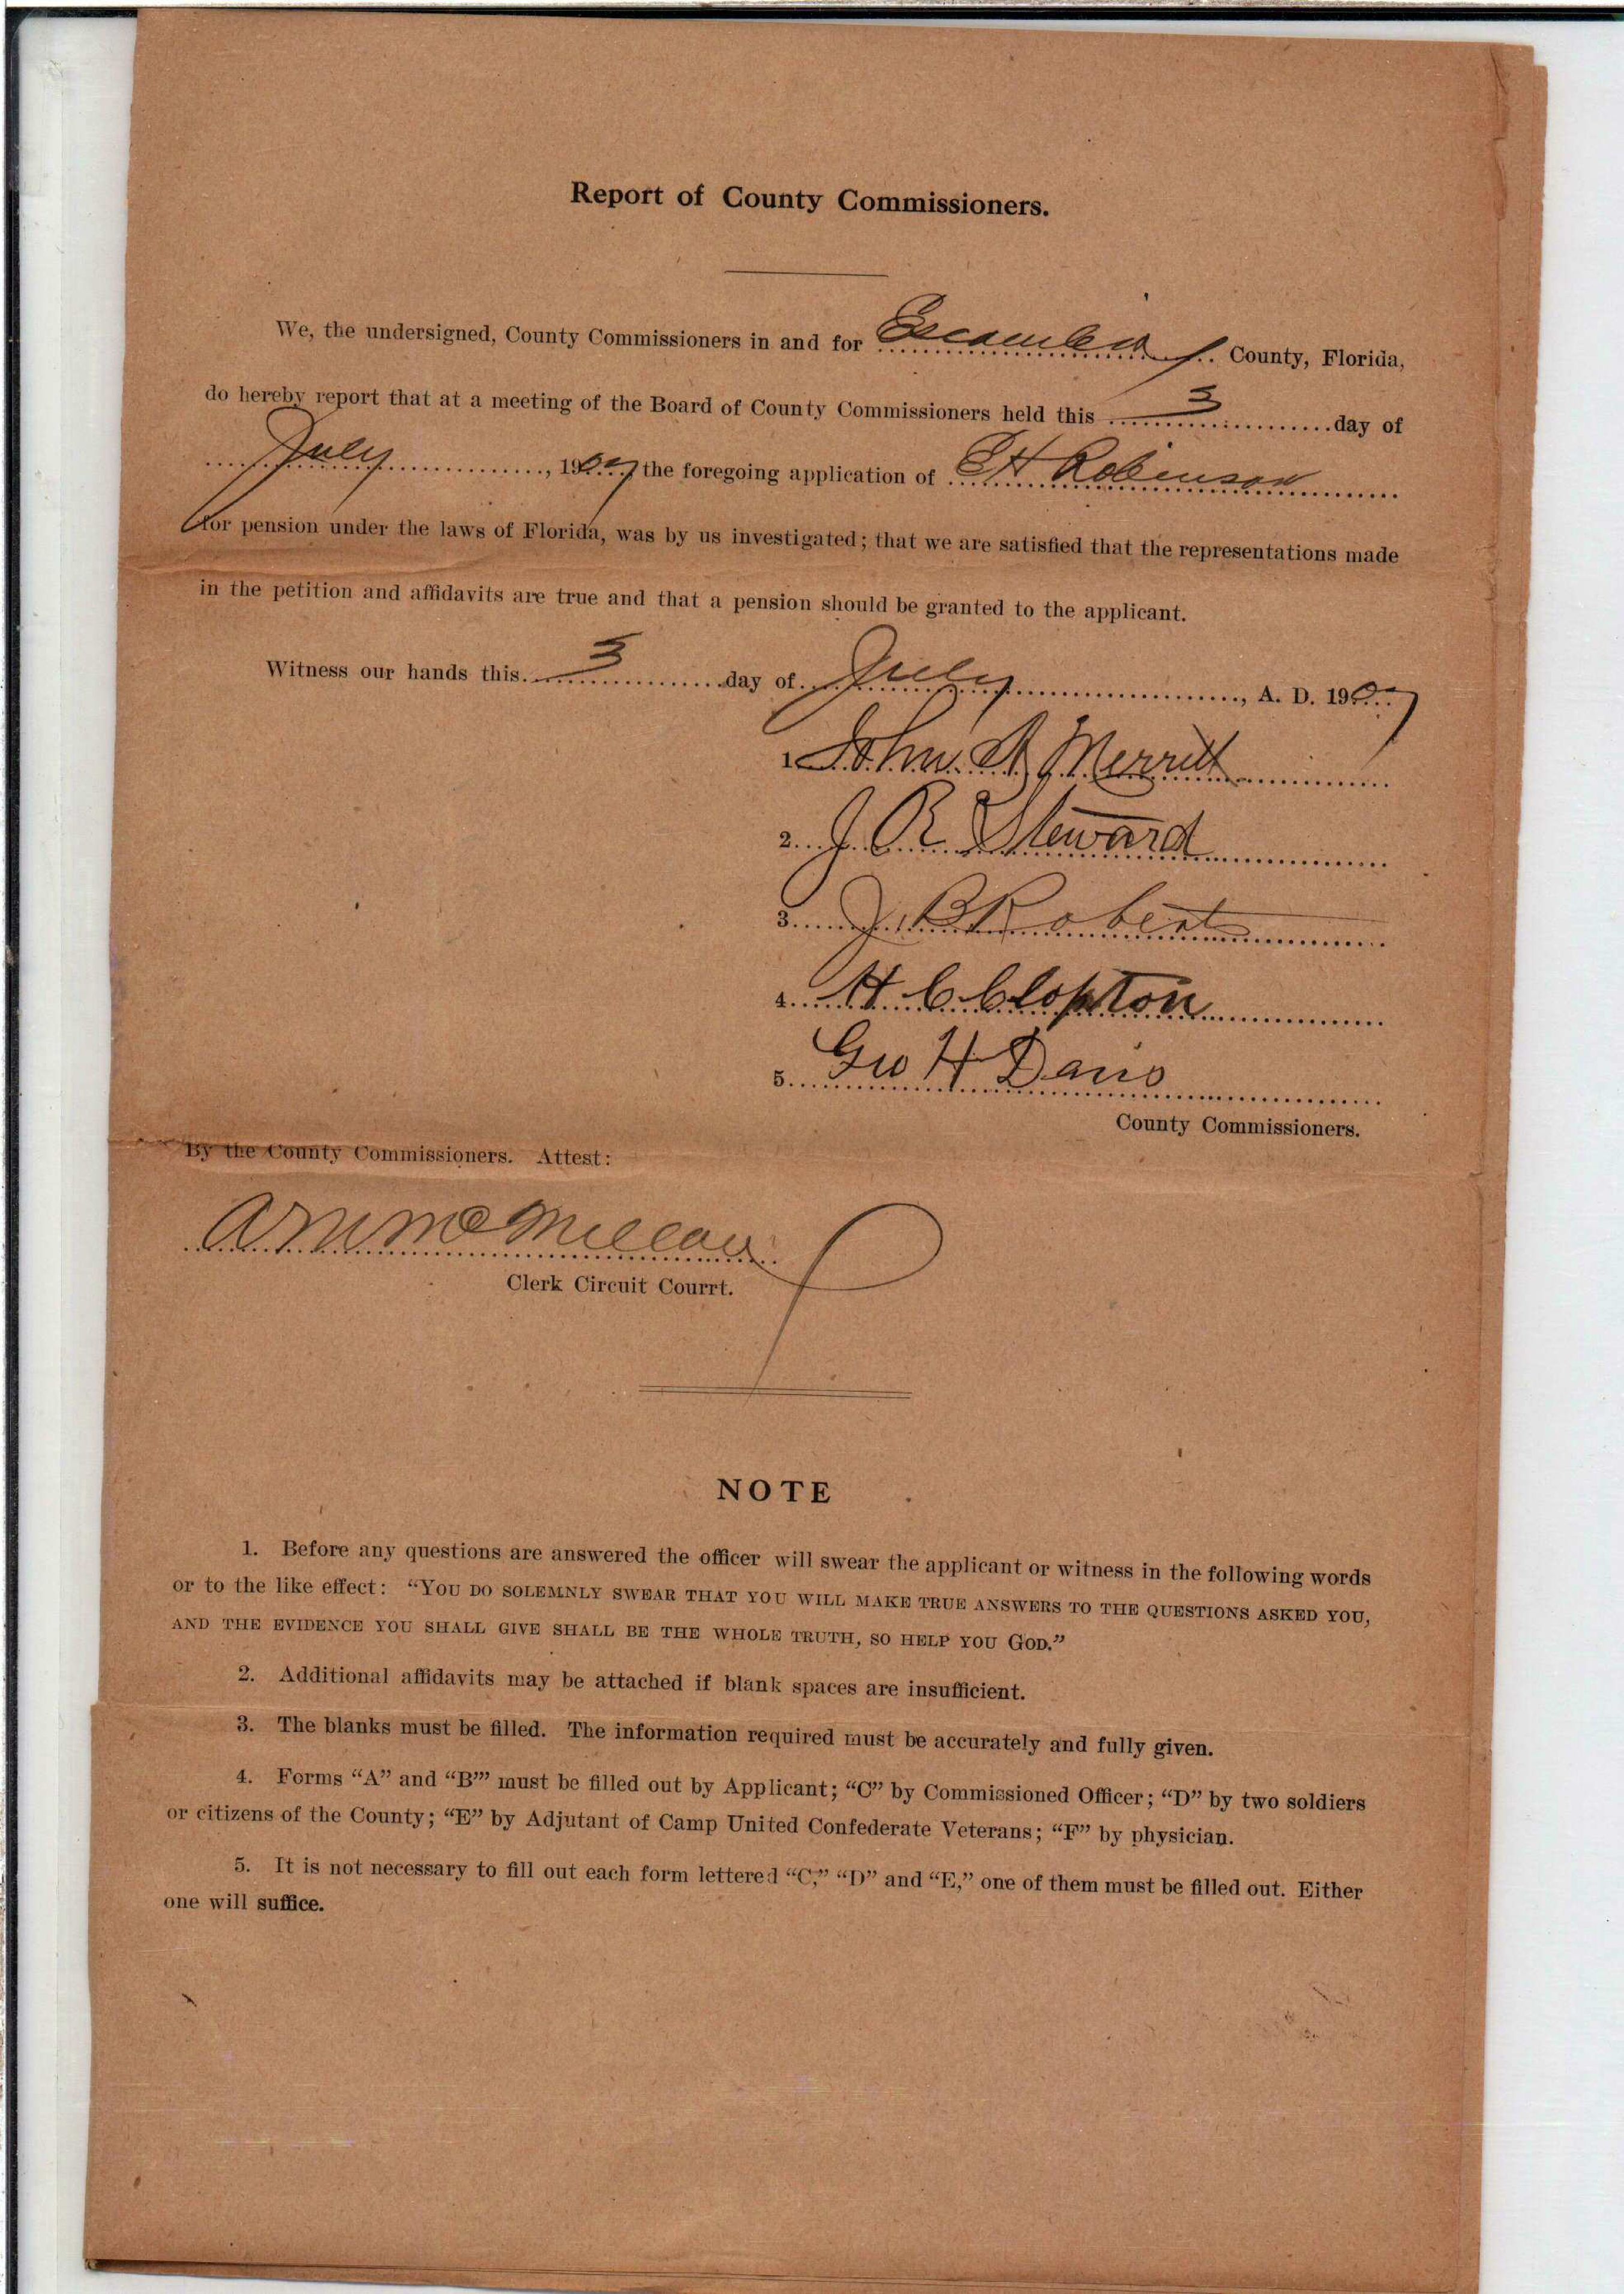 Report of County Commissioners.
We, the undersigned, County Commissioners in and for Escambia County, Florida,
do hereby report that at a meeting of the Board of County Commissioners held this 3 day of
July, 1907 the foregoing application of E H Robinson
for pension under the laws of Florida, was by us investigated; that we are satisfied that the representations made
in the petition and affidavits are true and that a pension should be granted to the applicant.
Witness our hands this 3 day of July, A. D. 1907
1 John A Merritt
2. J. R. Steward
3. J. B Roberts
4. H C Clopton
5. Geo H Davis
County Commissioners.
By the County Commissioners. Attest:
McMillan
Clerk Circuit Courrt.
NOTE
1. Before any questions are answered the officer will swear the applicant or witness in the following words
or to the like effect: "YOU DO SOLEMNLY SWEAR THAT YOU WILL MAKE TRUE ANSWERS TO THE QUESTIONS ASKED YOU,
AND THE EVIDENCE YOU SHALL GIVE SHALL BE THE WHOLE TRUTH, SO HELP YOU GOD."
2. Additional affidavits may be attached if blank spaces are insufficient.
3. The blanks must be filled. The information required must be accurately and fully given.
4. Forms "A" and "B"' must be filled out by Applicant; "C" by Commissioned Officer; "D" by two soldiers
or citizens of the County; "E" by Adjutant of Camp United Confederate Veterans; "F" by physician.
5. It is not necessary to fill out each form lettered "C," "D" and "E," one of them must be filled out. Either
one will suffice.